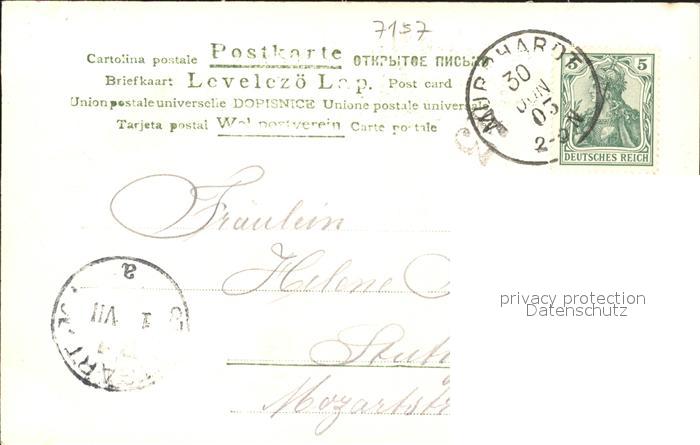 7157
Cartolina postale Postkarte ОТКРЫТОЕ ПИСЬМО
Briefkaart Levelező Lap. Post card
Union postale universelle DOPISNICE Unione postale universale
Tarjeta postal Weltpostverein Carte postale
MURRHARDT
30 JUN 05
2-3 N
5
DEUTSCHES REICH
Fräulein
Helene
privacy protection
Datenschutz
a
1 VII
Stutt
Mozartstr